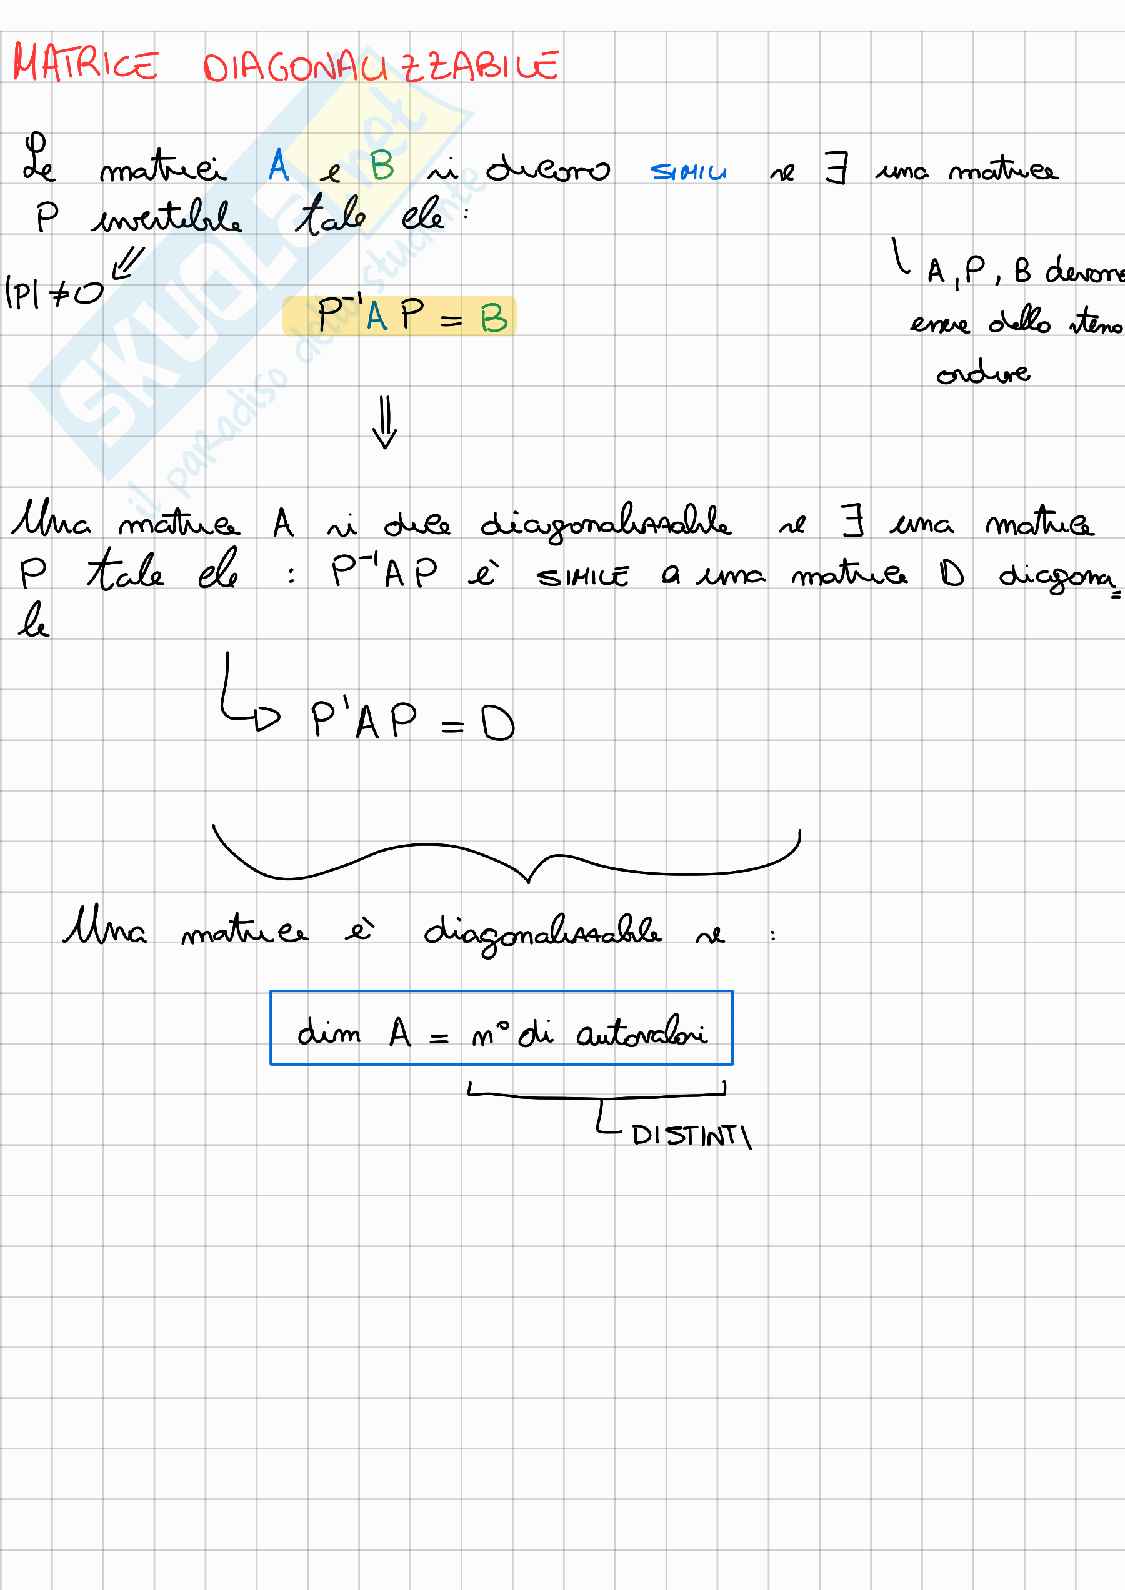 MATRICE DIAGONALIZZABILE
Le matrici A e B si dicono SIMILI se ∃ una matrice
P invertibile tale che :
|P| ≠ 0
A, P, B devono
essere dello stesso
ordine
P⁻¹AP = B
⇓
Una matrice A si dice diagonalizzabile se ∃ una matrice
P tale che : P⁻¹AP è SIMILE a una matrice D diagona=
le
P'AP = D
Una matrice è diagonalizzabile se :
dim A = n° di autovalori
DISTINTI
SKUOLA.net
il paradiso dello studente